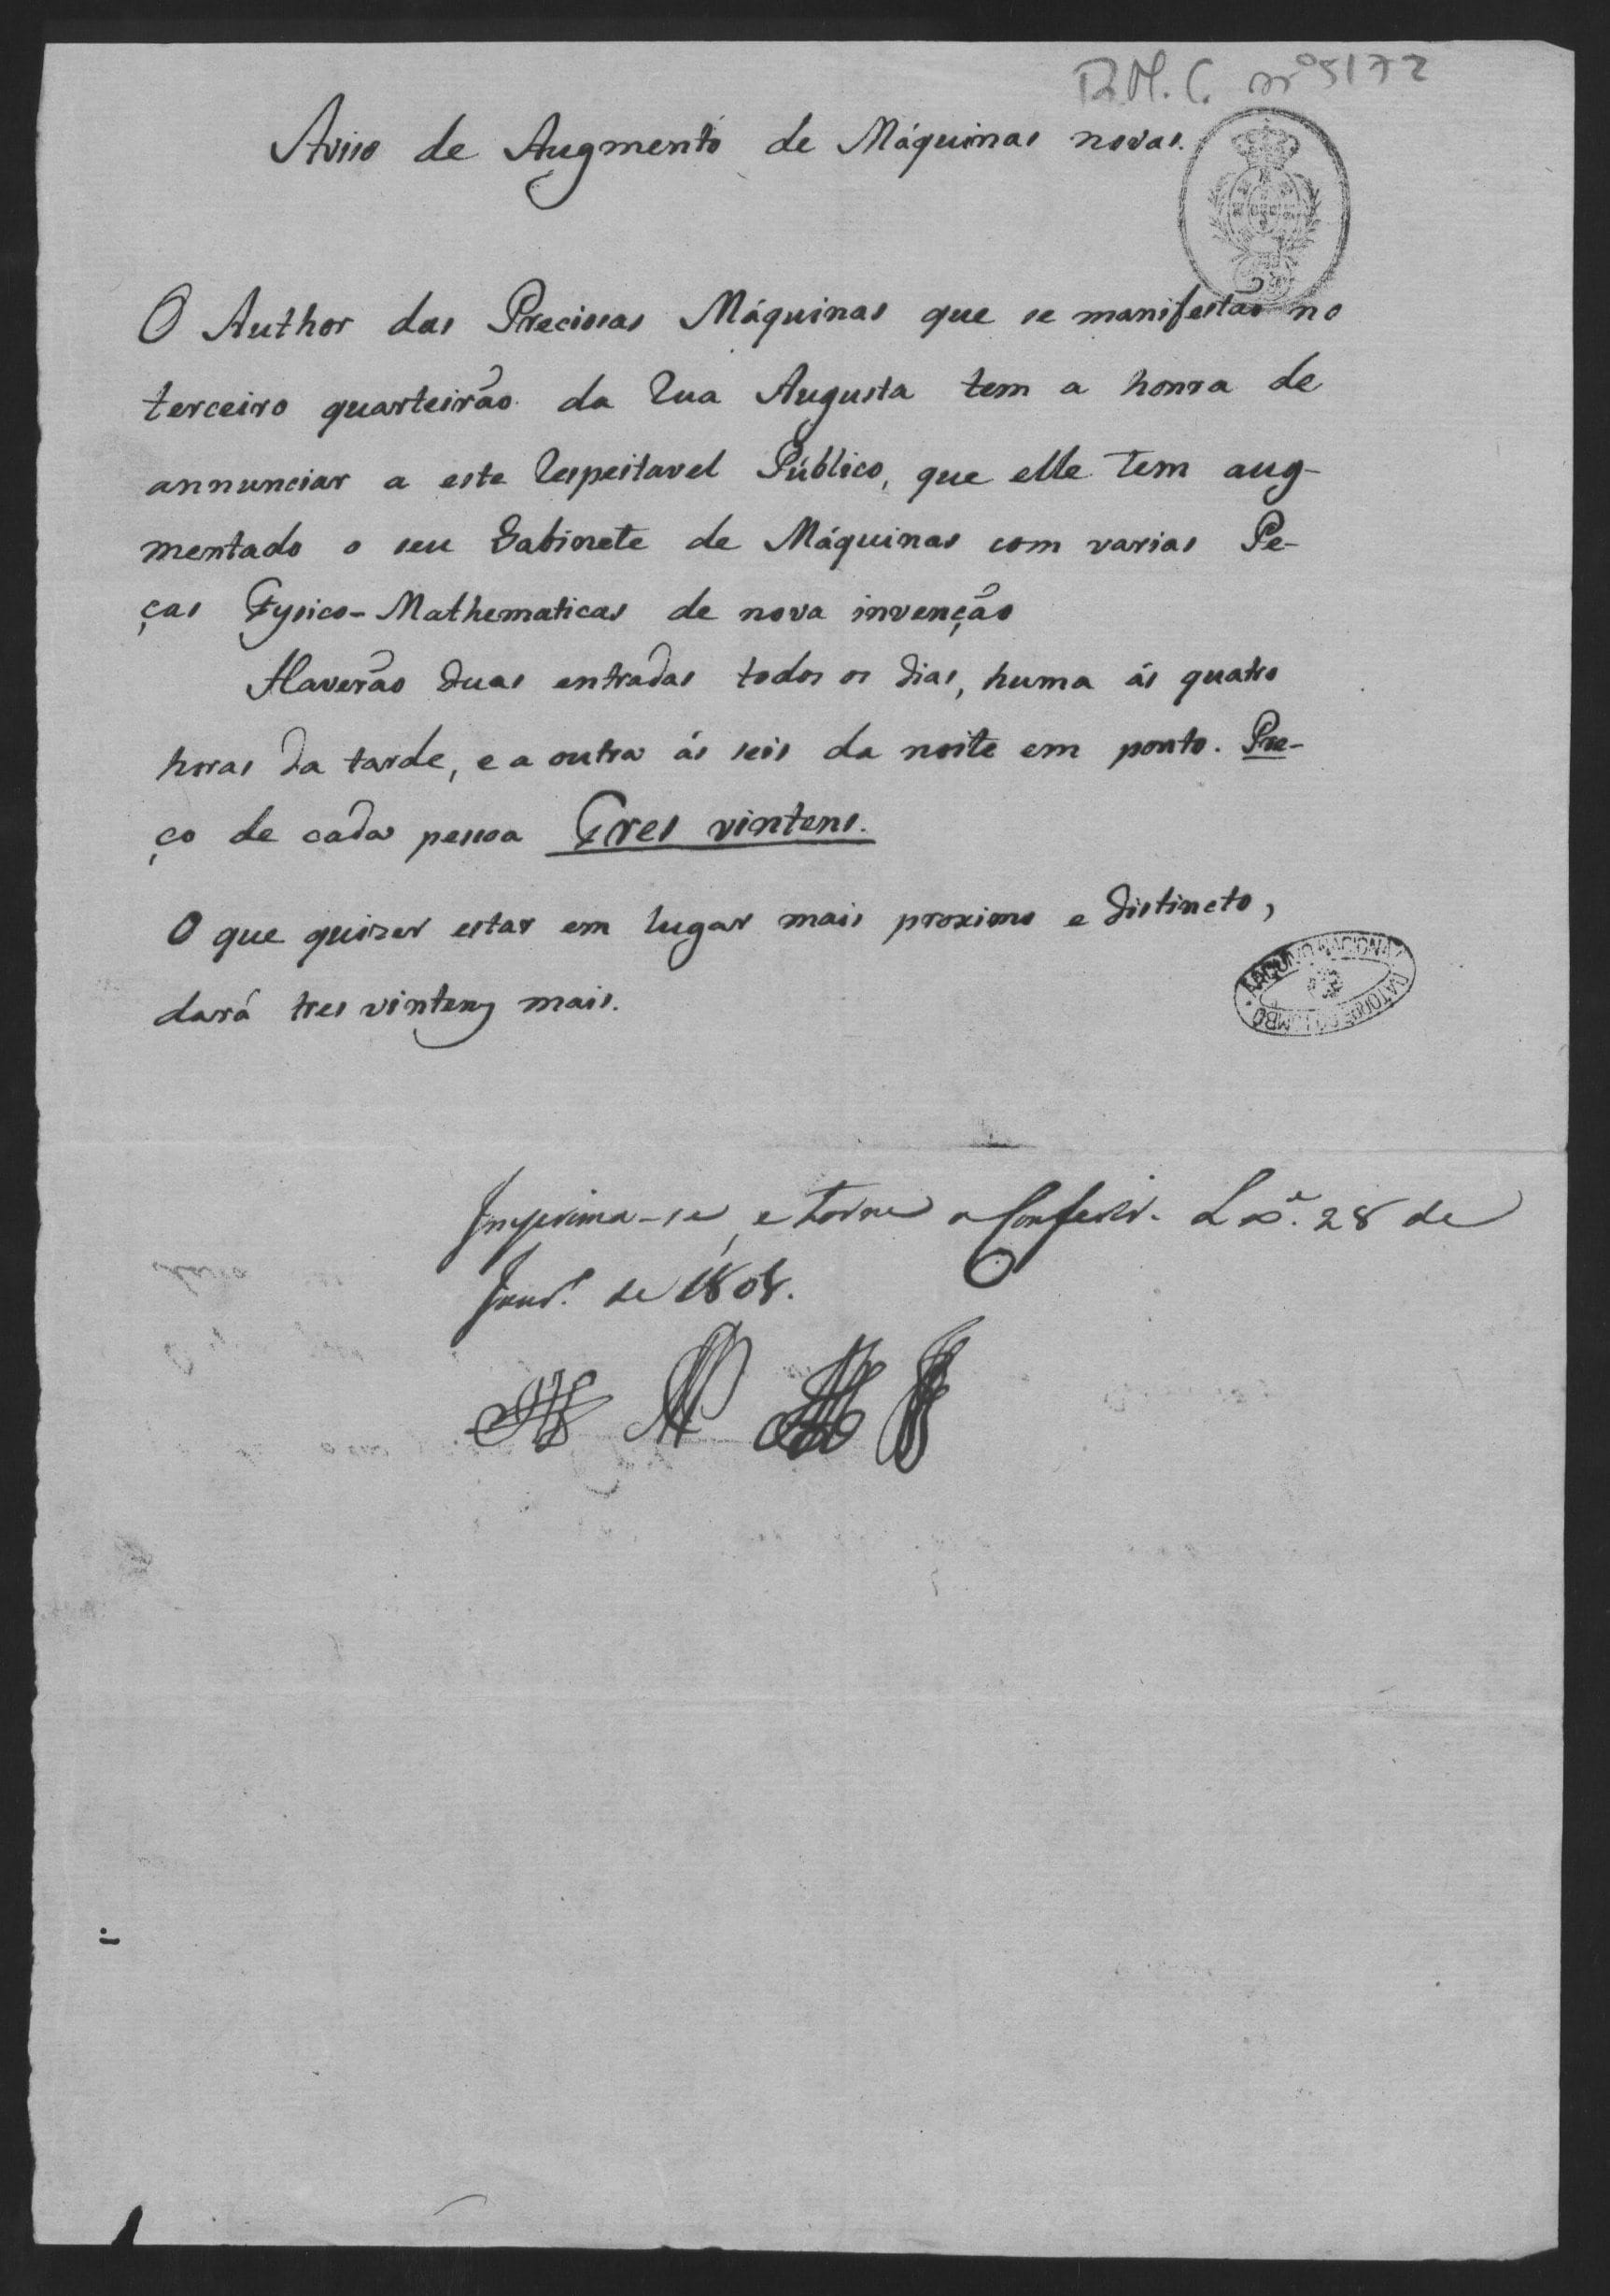 R.M.C. nº 5172
Aviso de Augmento de Máquinas novas.
O Author das Preciosas Máquinas que se manifestão no
terceiro quarteirão da Rua Augusta tem a honra de
annunciar a este Respeitavel Público, que elle tem aug-
mentado o seu Gabinete de Máquinas com varias Pe-
ças Fysico-Mathematicas de nova invenção
Haverão duas entradas todos os dias, huma ás quatro
horas da tarde, e a outra ás seis da noite em ponto. Pre-
ço de cada pessoa Tres vintens.
O que quizer estar em lugar mais proximo e distincto,
ARQUIVO NACIONAL DA TORRE DO TOMBO
dará tres vintens mais.
Imprima-se, e torne a Conferir. Lxª. 28 de
Janrº. de 1808.